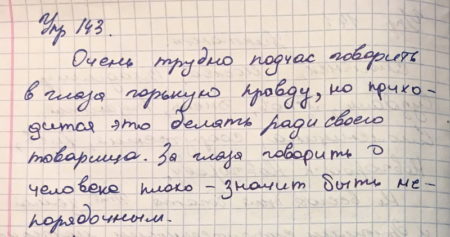 Упр 143.
Очень трудно подчас говорить
в глаза горькую правду, но прихо-
дится это делать ради своего
товарища. За глаза говорить о
человеке плохо – значит быть не-
порядочным.